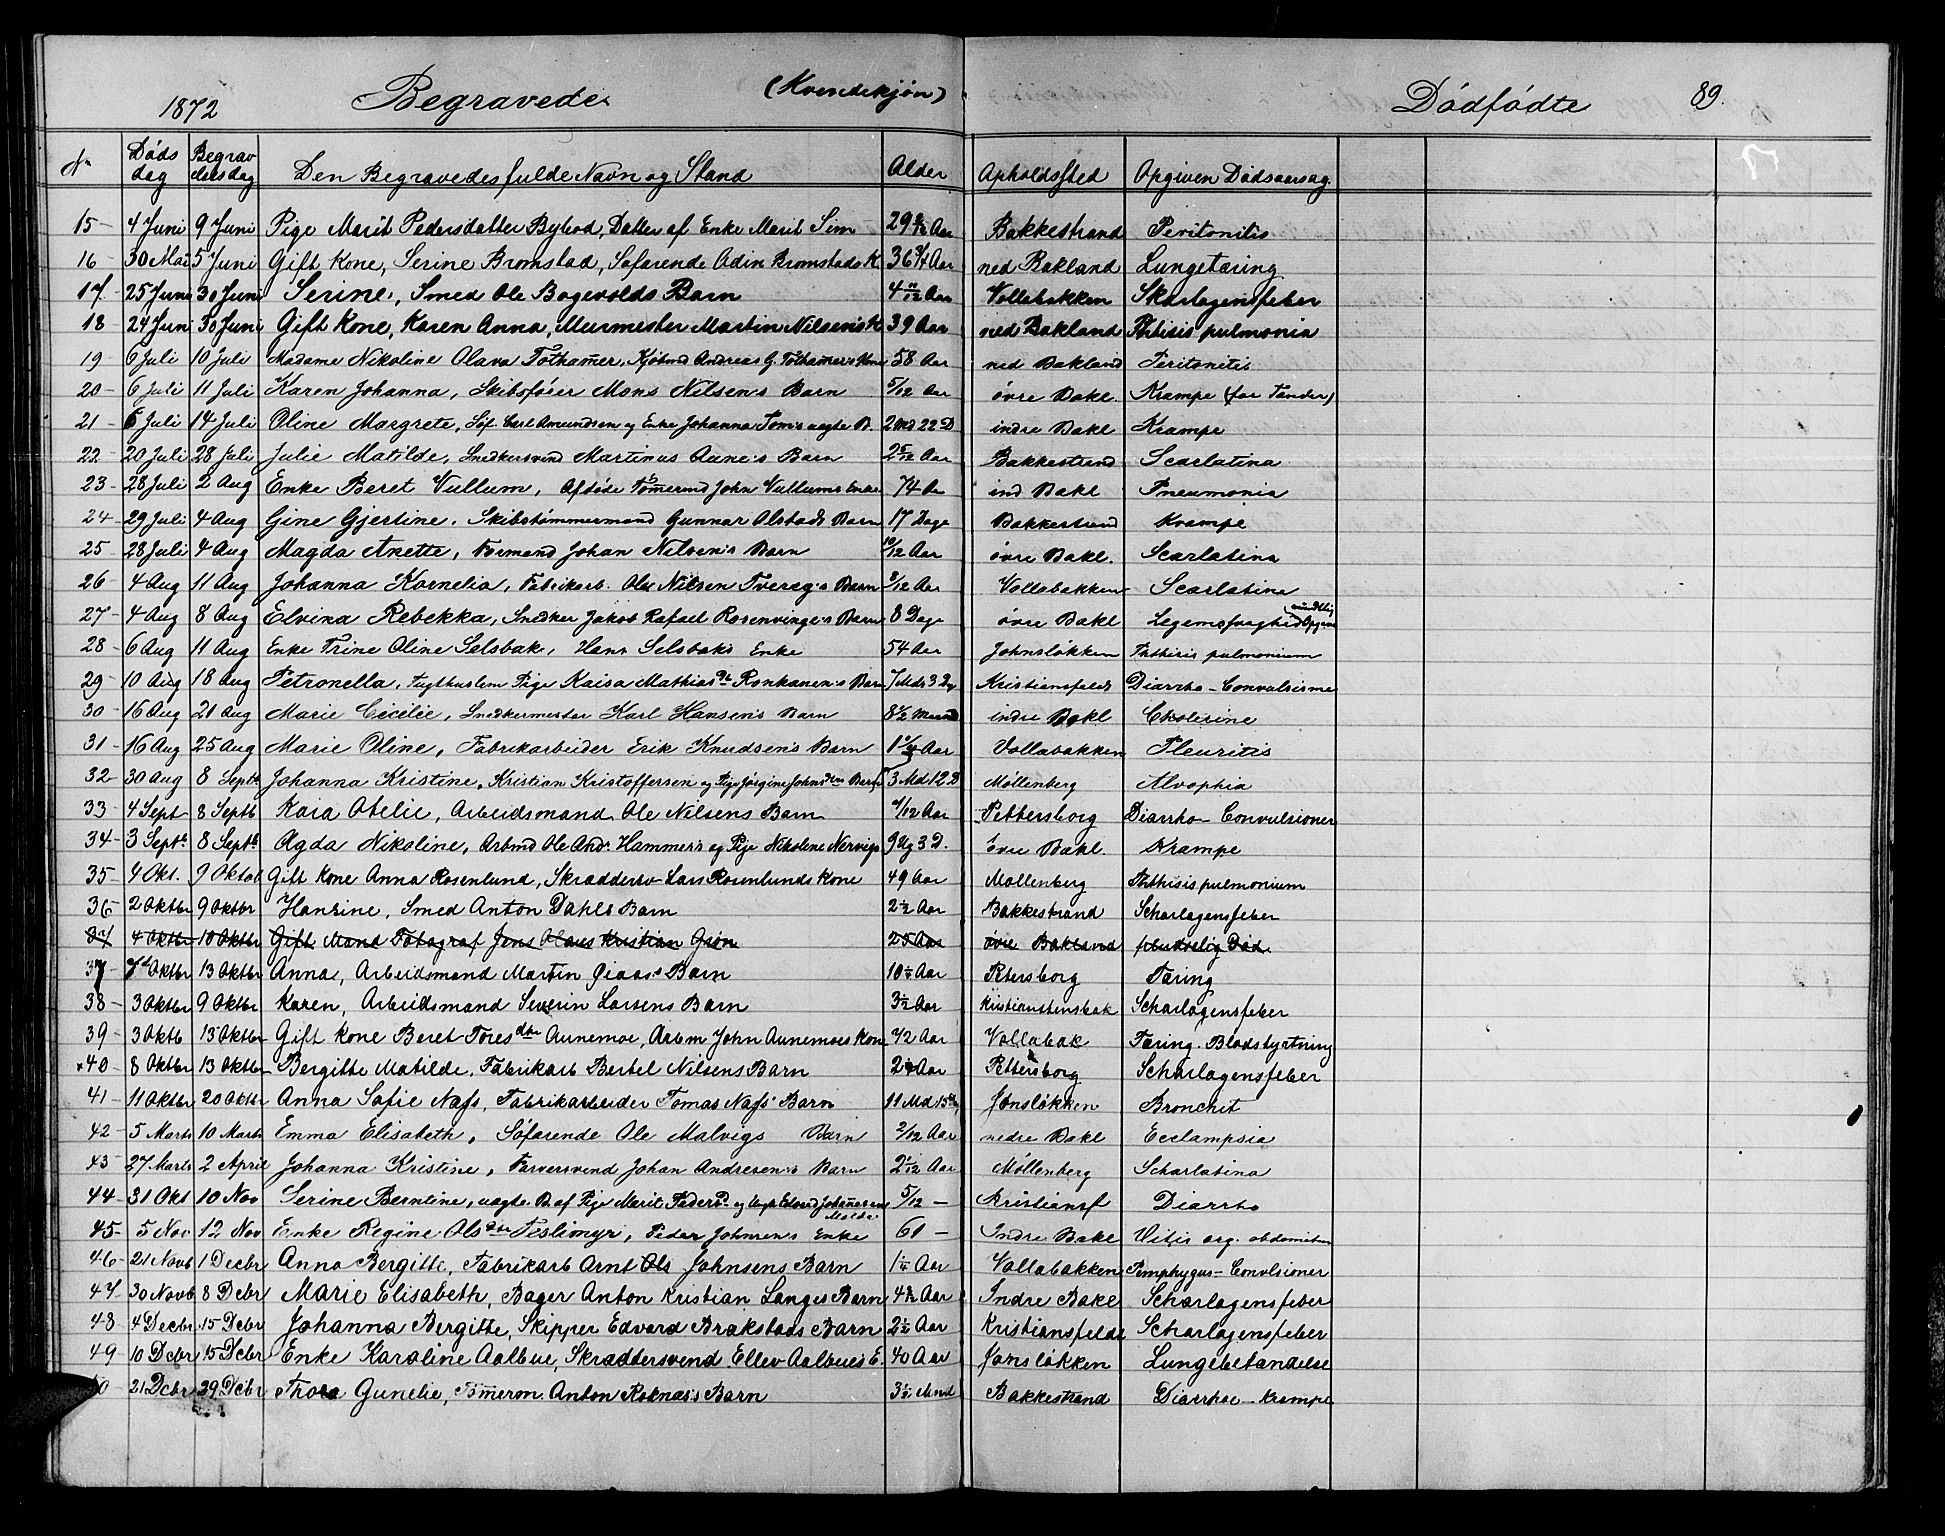 1872 Begravede (Kvindekjøn) Dødfødte 89.
No Døds dag Begravelsesdag Den Begravedes fulde Navn og Stand Alder Opholdssted Opgiven Dødsaarsag
15 4 Juni 9 Juni Pige Marit Pedersdatter Bybrod, Datter af Enke Marit Sim 29 Aar Bakkestrand Peritonitis
16 30 Mai 5 Juni Gift Kone, Serine Bromstad, Søfarende Odin Bromstads K. 36 3/4 Aar ned Bakland Lungetæring
17 25 Juni 30 Juni Serine, Smed Ole Bogevolds Barn 4 11/12 Aar Vollabakken Skarlagensfeber
18 24 Juni 30 Juni Gift Kone, Karen Anna, Murmester Martin Nilsen's K 39 Aar ned Bakland Phthisis pulmonia
19 6 Juli 10 Juli Madame Nikoline Olava Tofhamer, Kjøbmd Andreas G. Tofhamer's Kone 58 Aar ned Bakland Peritonitis
20 6 Juli 11 Juli Karen Johanna, Skibsfører Mons Nilsen's Barn 5/12 Aar øvre Bakl. Krampe (for Tænder)
21 6 Juli 14 Juli Oline Margrete, Søf. Carl Amundsen og Enke Johanna Tom's uægte B. 2 Md 22 D indre Bakl Krampe
22 20 Juli 28 Juli Julie Matilde, Snedkersvend Martinus Aune's Barn 2 5/12 Aar Bakkestrand Scarlatina
23 28 Juli 2 Aug Enke Beret Vullum, Afdøde Tømermd John Vullums Enke 74 Aar ind Bakl Pneumonia
24 29 Juli 4 Aug Gine Gjertine, Skibstømmermand Gunnar Olstads Barn 17 Dage Bakkestrand Krampe
25 28 Juli 4 Aug Magda Anette, Formand Johan Nilsen's Barn 10/12 Aar øvre Bakl. Scarlatina
26 4 Aug 11 Aug Johanna Kornelia, Fabrikarb. Ole Nilsen Tvereg's Barn 2/12 Aar Vollabakken Scarlatina
27 4 Aug 8 Aug Elvina Rebekka, Snedker Jakob Rafael Rosenvinge's Barn 8 Dage øvre Bakl Legemssvaghed mundtlig Opgive
28 6 Aug 11 Aug Enke Trine Oline Selsbak, Hans Selsbaks Enke 54 Aar Johnsløkken Phthisis pulmonium
29 10 Aug 18 Aug Petronella, Tugthuslem Pige Kaisa Mathiasdt Ronkanen's Barn 7 Mdr 3 Dg Kristiansfelds Diarrho-Convulsione
30 16 Aug 21 Aug Marie Cecilie, Snedkermester Karl Hansen's Barn 8 1/2 Maaned indre Bakl Cholerine
31 16 Aug 25 Aug Marie Oline, Fabrikarbeider Erik Knudsen's Barn 1 1/4 Aar Vollabakken Pleuritis
32 30 Aug 8 Septb Johanna Kristine, Kristian Kristoffersen og Pige Jørgine Johnsdtrs Barn 3 Md 12 D Møllenberg Atrophia
33 4 Sept 8 Septb Kaia Otelie, Arbeidsmand Ole Nilsens Barn 4/12 Aar Pettersborg Diarrho-Convulsioner
34 3 Septb 8 Septb Agda Nikoline, Arbmd Ole Andr. Hammer's og Pige Nikoline Nervigs 9 Ug 3 D. Evre Bakl. Krampe
35 4 Okt. 9 Oktob Gift Kone Anna Rosenlund, Skræddersv Lars Rosenlunds Kone 49 Aar Møllenberg Phthisis pulmonium
36 2 Oktbr 9 Oktbr Hansine, Smed Anton Dahls Barn 2 1/2 Aar Bakkestrand Scharlagensfeber
37 4 Oktbr 10 Oktbr Gift Mand Fotograf Jens Olaus Kristian Grøn 25 Aar øvre Bakland pludselig Død
37 7d Oktbr 13 Oktbr Anna, Arbeidsmand Martin Giaas's Barn 10 1/4 Aar Petersborg Tæring
38 3 Oktbr 9 Oktbr Karen, Arbeidsmand Severin Larsens Barn 3 1/2 Aar Kristianstensbak Scharlagensfeber
39 3 Oktb 13 Oktbr Gift Kone Beret Toresdtr Aunemoe, Arbm John Aunemoes Kone 42 Aar Vollabak Tæring. Blodstyrtning
40 8 Oktbr 13 Oktbr Bergitte Matilde, Fabrikarb Bertel Nilsens Barn 2 1/4 Aar Pettersborg Scharlagensfeber
41 11 Oktbr 20 Oktbr Anna Sofie Næss, Fabrikarbeider Tomas Næss' Barn 11 Md 15 Dg Jonsløkken Bronchit
42 5 Marts 10 Marts Emma Elisabeth, Søfarende Ole Malvigs Barn 2/12 Aar nedre Bakl Ecclampsia
43 27 Marts 2 April Johanna Kristine, Farversvend Johan Andresen's Barn 2 1/12 Aar Møllenberg Scharlatina
44 31 Okt 10 Nov Serine Berntine, uægte B. af Pige Marit Pedersd og Ungk Edvard Johannesen Molde 5/12 — Kristiansf Diarrho
45 5 Nov 12 Nov Enke Regine Olsdtr Teslimyr, Peder Johnsen's Enke 61 — Indre Bakl Vitis org. abdominten
46 21 Novb 1 Decbr Anna Bergitte, Fabrikarb Arnt Ols Johnsens Barn 1 1/4 Aar Vollabakken Pemphygus-Convlsioner
47 30 Novb 8 Dcbr Marie Elisabeth, Bager Anton Kristian Langes Barn 4 1/2 Aar Indre Bakl Scharlagensfeber
48 4 Decbr 15 Dcbr Johanna Bergitte, Skipper Edvard Brækstads Barn 2 1/2 Aar Kristiansfeldt Scharlagensfeber
49 10 Dcbr 15 Dcbr Enke Karoline Aalbue, Skræddersvend Ellev Aalbues E. 40 Aar Jonsløkken Lungebetændelse
50 21 Dcbr 29 Dcbr Thora Gunelie, Tømerm. Anton Roknæs's Barn 3 1/2 Mnd Bakkestrand Diarrhoe - Krampe